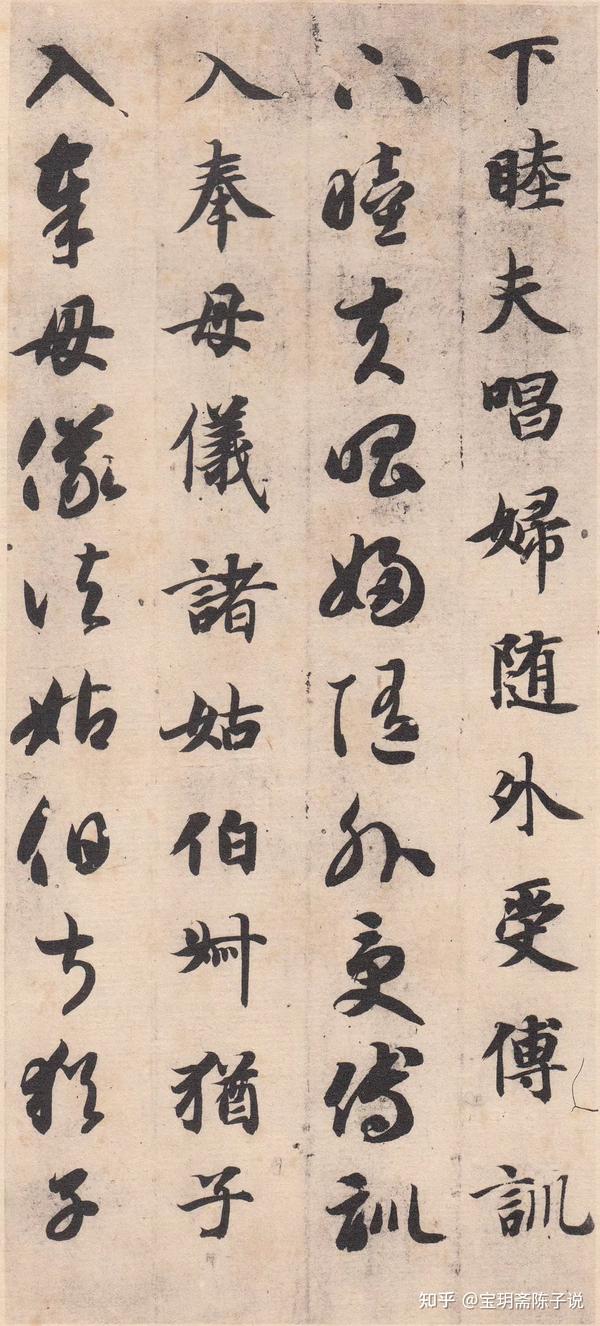 下睦夫唱婦随外受傅訓
下睦夫唱婦随外受傅訓
入奉母儀諸姑伯叔猶子
入奉母儀諸姑伯叔猶子
知乎 @宝玥斋陈子说